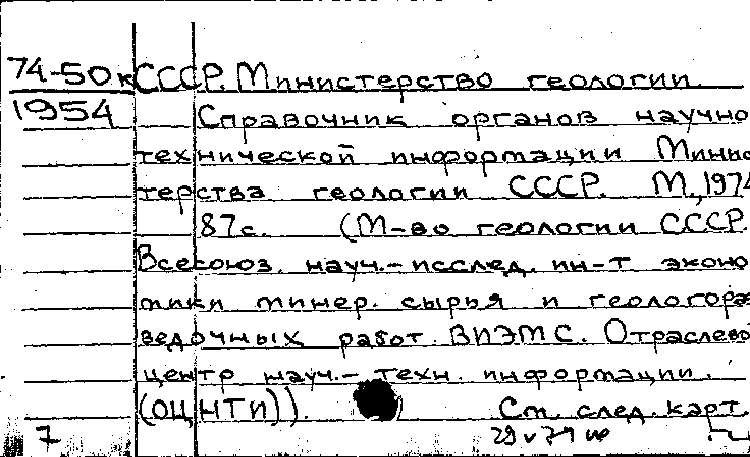 74-50к СССР. Министерство геологии.
1954 Справочник органов научно
технической информации Минис
терства геологии СССР. М., 1974
87с. (М-во геологии СССР.
Всесоюз. науч.-исслед. ин-т эконо
мики минер. сырья и геологораз
ведочных работ. ВИЭМС. Отраслево
центр науч.-техн. информации.
(ОЦНТИ)).
См. след. карт.
7